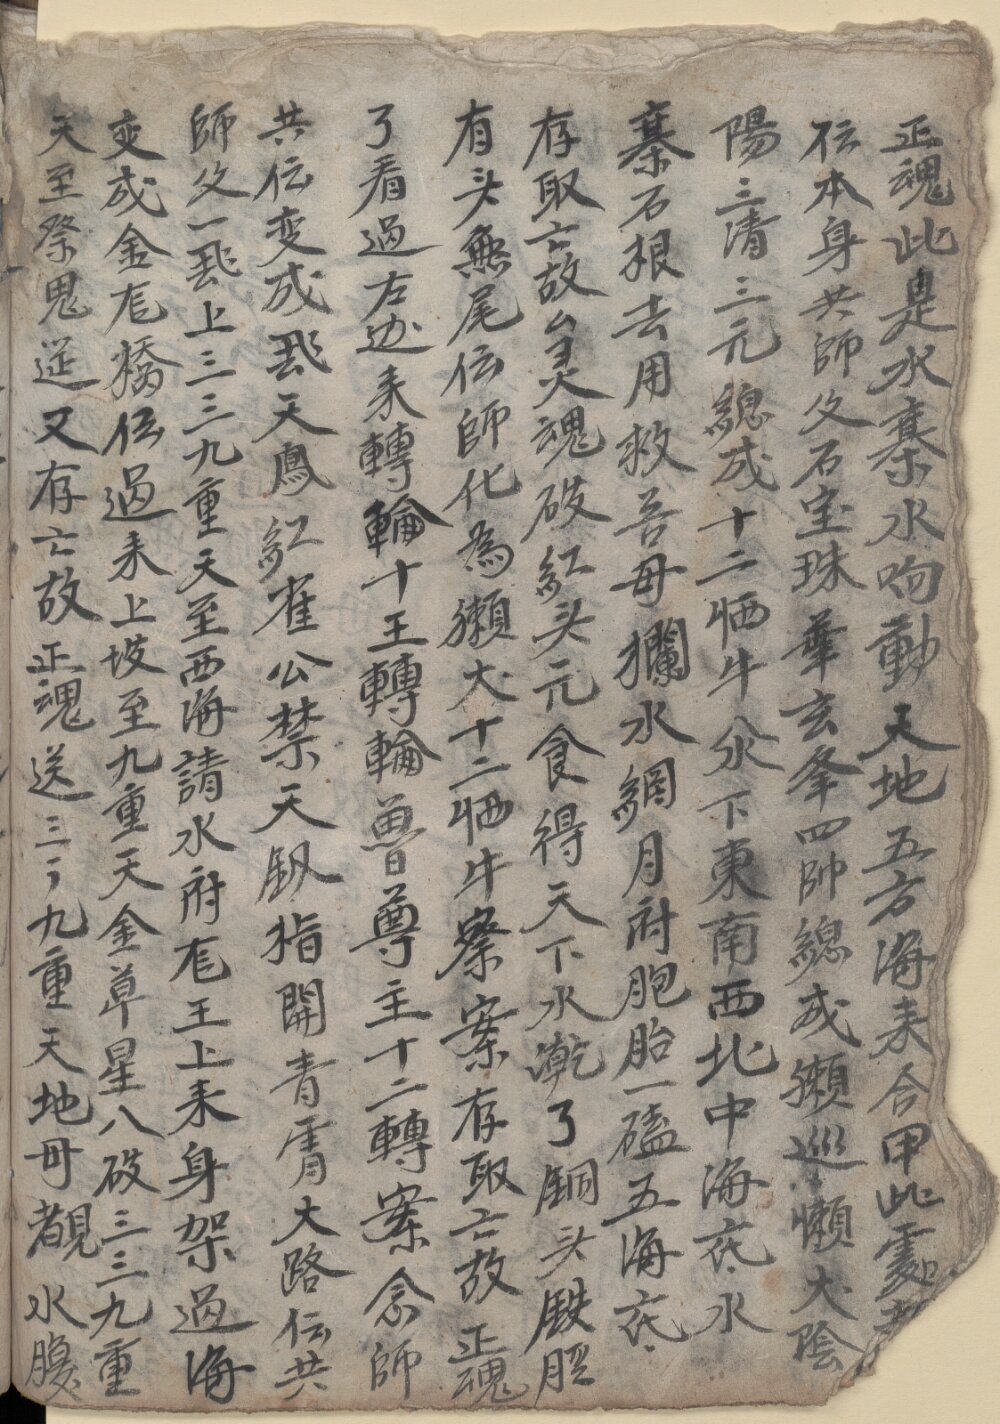 正魂此是水寨水响動天地五方海来合甲此處
伝本身共師父石宝珠華玄夆四帥緫成獺巡懶大陰
陽三清三元緫成十二牺牛分下東南西北中海底水
寨石根去用救苦母攔水網月府胞胎一磕五海底
存取亡故厶灵魂破紅头元食得天下水乾了銅头鉄胫
有头無尾伝師化為獺犬十二牺牛寨案存取亡故正魂
了看過左边来轉輪十王轉輪曽尊主十二轉案念師
共伝変成飛天鳳紅雀公禁天釼指開青霄大路伝共
師父一飛上三三九重天至西海請水府龙王上来身架過海
変成金龙橋伝過来上坡至九重天金草星八破三三九重
天至祭鬼送又存亡故正魂送三了九重天地毋覩水腹